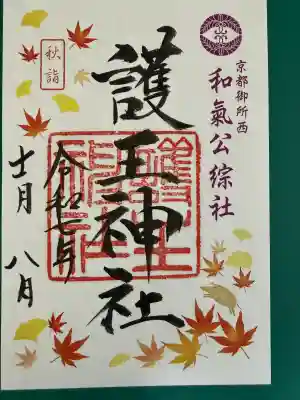 京都御所西
和氣公綜社
護王神社
秋詣
令和七年
十一月 八日